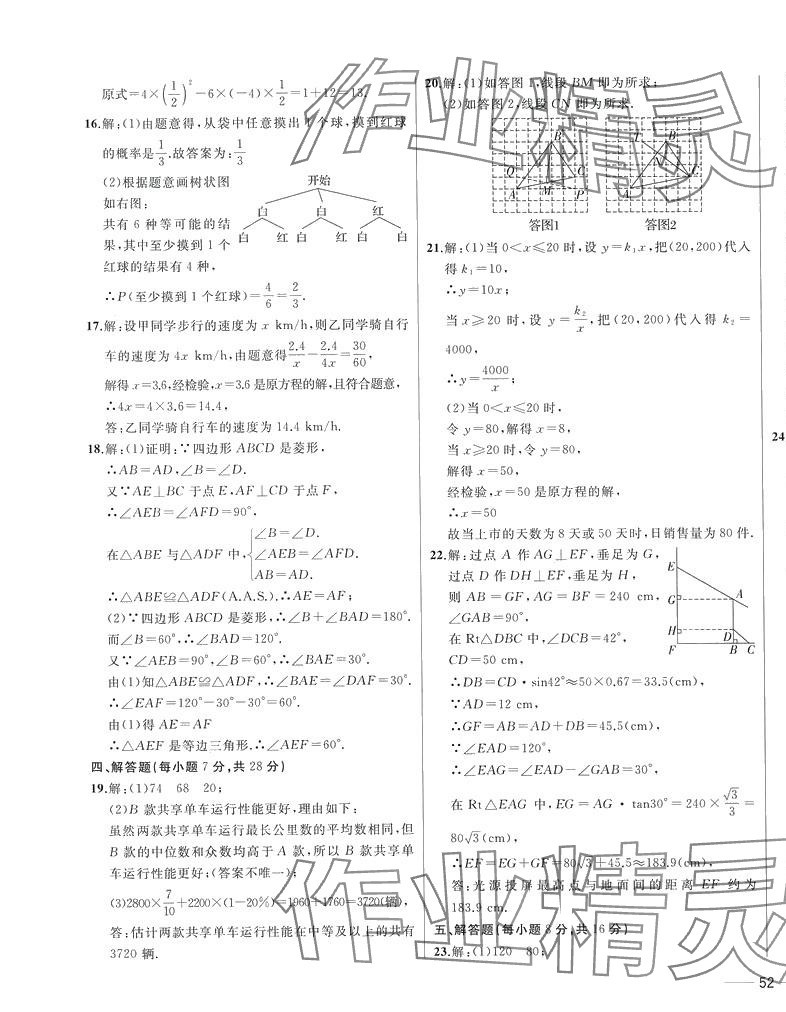 原式=4×(1/2)²-6×(-4)×1/2=1+12=13.
16.解:(1)由题意得,从袋中任意摸出1个球,摸到红球
的概率是1/3.故答案为:1/3
(2)根据题意画树状图
如右图:
共有6种等可能的结
果,其中至少摸到1个
红球的结果有4种,
开始
白 白 红
白 红 白 红 白 白
∴P(至少摸到1个红球)=4/6=2/3.
17.解:设甲同学步行的速度为x km/h,则乙同学骑自行
车的速度为4x km/h,由题意得2.4/x-2.4/4x=30/60,
解得x=3.6,经检验,x=3.6是原方程的解,且符合题意,
∴4x=4×3.6=14.4,
答:乙同学骑自行车的速度为14.4 km/h.
18.解:(1)证明:∵四边形ABCD是菱形,
∴AB=AD,∠B=∠D.
又∵AE⊥BC于点E,AF⊥CD于点F,
∴∠AEB=∠AFD=90°,
在△ABE与△ADF中,{∠B=∠D.
∠AEB=∠AFD.
AB=AD.
∴△ABE≌△ADF(A.A.S.).∴AE=AF;
(2)∵四边形ABCD是菱形,∴∠B+∠BAD=180°.
而∠B=60°,∴∠BAD=120°.
又∵∠AEB=90°,∠B=60°,∴∠BAE=30°.
由(1)知△ABE≌△ADF,∴∠BAE=∠DAF=30°.
∴∠EAF=120°-30°-30°=60°.
由(1)得AE=AF
∴△AEF是等边三角形.∴∠AEF=60°.
四、解答题(每小题7分,共28分)
19.解:(1)74 68 20;
(2)B款共享单车运行性能更好,理由如下:
虽然两款共享单车运行最长公里数的平均数相同,但
B款的中位数和众数均高于A款,所以B款共享单
车运行性能更好;(答案不唯一);
(3)2800×7/10+2200×(1-20%)=1960+1760=3720(辆),
答:估计两款共享单车运行性能在中等及以上的共有
3720辆.
20.解:(1)如答图1,线段BM即为所求;
(2)如答图2,线段CN即为所求.
B Q C A M P
T B N C A
答图1 答图2
21.解:(1)当0<x≤20时,设y=k₁x,把(20,200)代入
得k₁=10,
∴y=10x;
当x≥20时,设y=k₂/x,把(20,200)代入得k₂=
4000,
∴y=4000/x;
(2)当0<x≤20时,
令y=80,解得x=8,
当x≥20时,令y=80,
解得x=50,
经检验,x=50是原方程的解,
∴x=50
故当上市的天数为8天或50天时,日销售量为80件.
22.解:过点A作AG⊥EF,垂足为G,
过点D作DH⊥EF,垂足为H,
则AB=GF,AG=BF=240 cm,
∠GAB=90°,
在Rt△DBC中,∠DCB=42°,
CD=50 cm,
E
G A
H D
F B C
∴DB=CD·sin42°≈50×0.67=33.5(cm),
∵AD=12 cm,
∴GF=AB=AD+DB=45.5(cm),
∵∠EAD=120°,
∴∠EAG=∠EAD-∠GAB=30°,
在Rt△EAG中,EG=AG·tan30°=240×√3/3=
80√3(cm),
∴EF=EG+GF=80√3+45.5≈183.9(cm),
答:光源投屏最高点与地面间的距离EF约为
183.9 cm.
五、解答题(每小题8分,共16分)
23.解:(1)120 80;
24
52
作业精灵
作业精灵